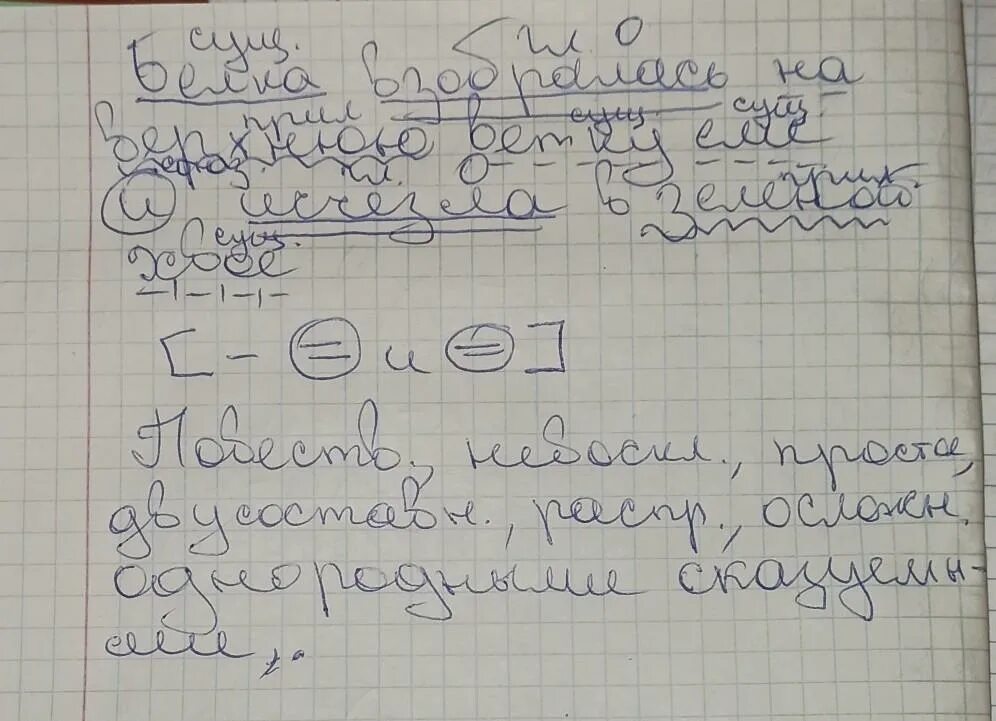 сущ. гл. О
Белка взобралась на
прил сущ. сущ.
верхнюю ветку ели
союз. гл. О прил.
и исчезла в зеленой
сущ.
хвое
[ - = и = ]
Повеств., невоскл., простое,
двусоставн., распр., осложн.
однородными сказуемы-
ми,.